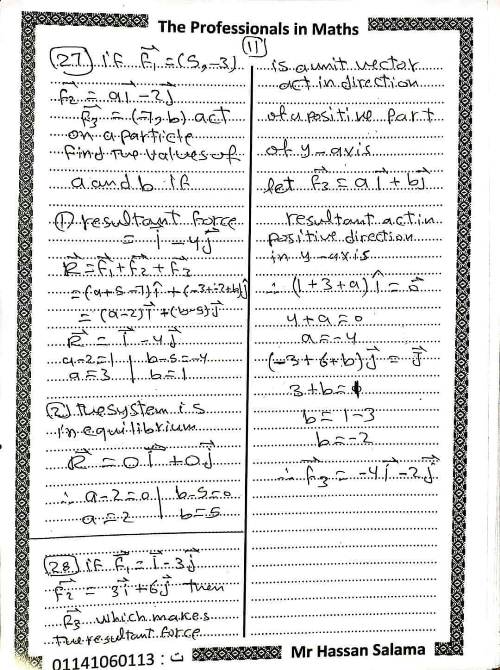 The Professionals in Maths
11
27) if F⃗1 = (5, -3)
F⃗2 = a i⃗ - 2 j⃗
F⃗3 = (-7, b) act
on a particle
find the values of
a and b if
1) resultant force
= i⃗ - 4 j⃗
R⃗ = F⃗1 + F⃗2 + F⃗3
= (a+5-7) i⃗ + (-3+-2+b) j⃗
= (a-2) i⃗ + (b-5) j⃗
R⃗ = i⃗ - 4 j⃗
a-2=1 | b-5=-4
a=3 | b=1
(2) the system is
in equilibrium
R⃗ = 0 i⃗ + 0 j⃗
∴ a-2=0 | b-5=0
a=2 | b=5
28) if F⃗1 = i⃗ - 3 j⃗
F⃗2 = 3 i⃗ + 6 j⃗ then
F⃗3 which makes
the resultant force
is a unit vector
act in direction
of a positive part
of y-axis
let F⃗3 = a i⃗ + b j⃗
resultant act in
positive direction
in y-axis
∴ (1+3+a) i⃗ = 0⃗
4+a=0
a=-4
(-3+6+b) j⃗ = j⃗
3+b=1
b=1-3
b=-2
∴ F⃗3 = -4 i⃗ - 2 j⃗
01141060113 : ت
Mr Hassan Salama